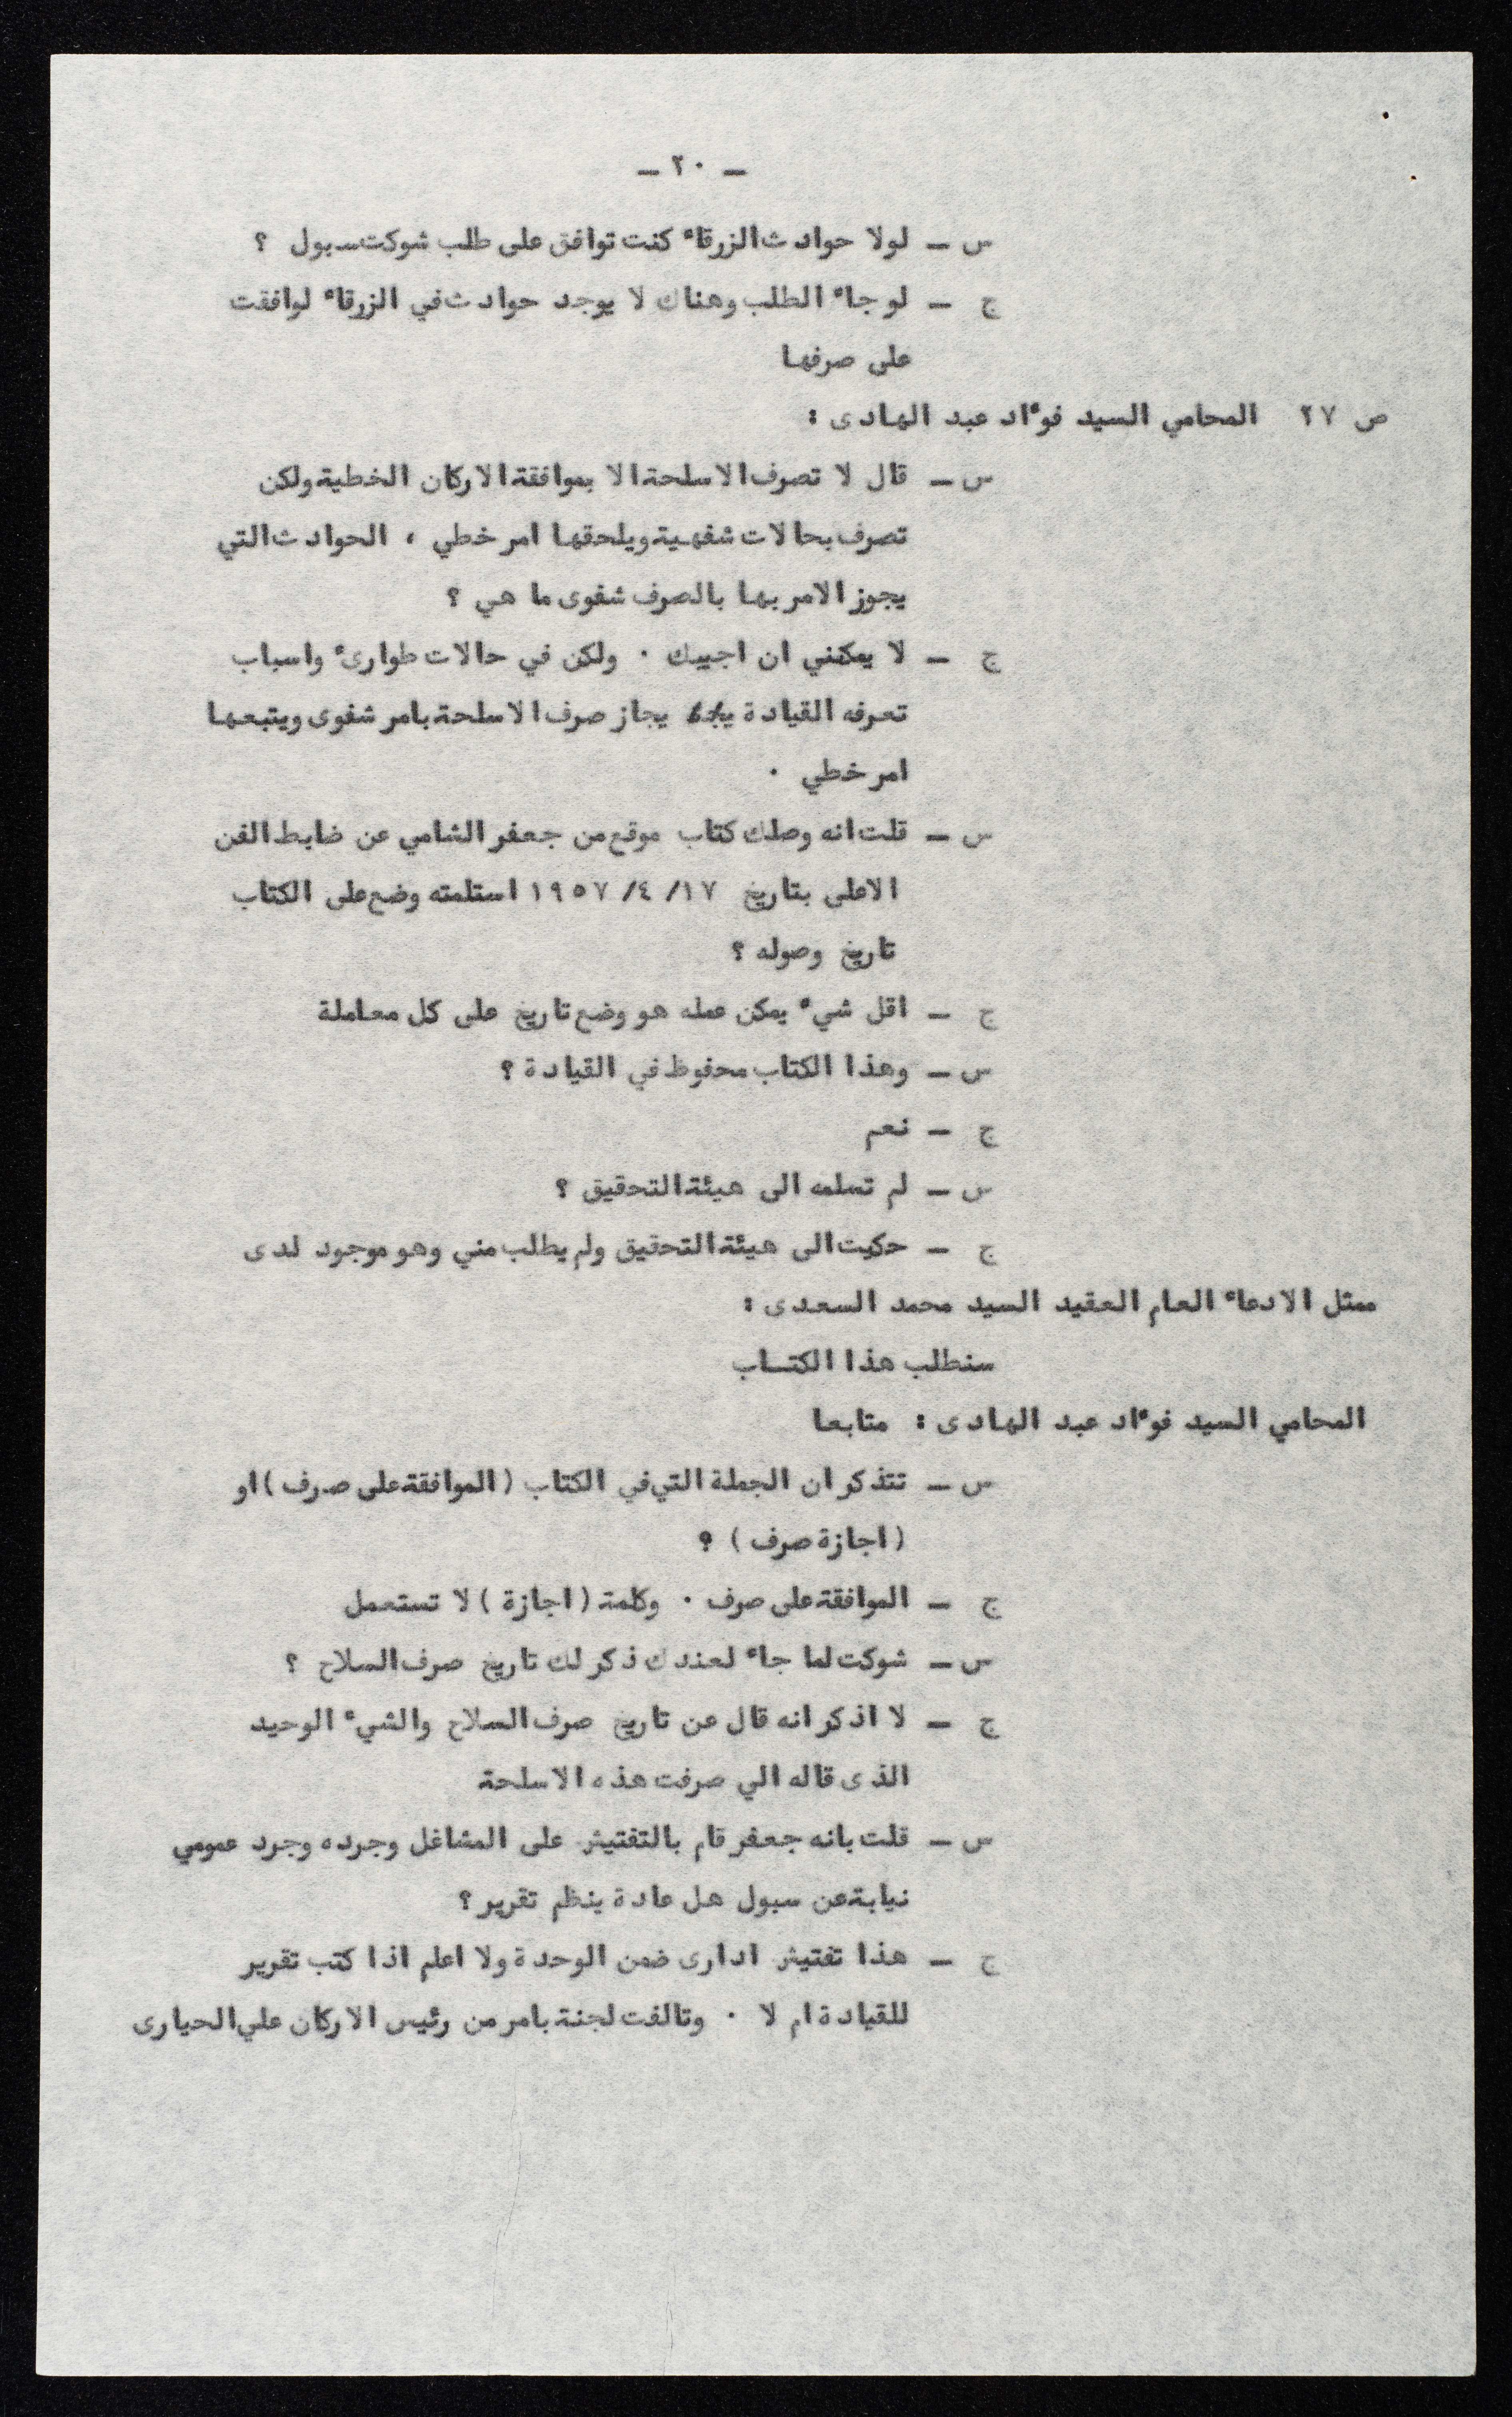 — ٢٠ —
س — لولا حوادث الزرقاء كنت توافق على طلب شوكت سبول ؟
ج — لو جاء الطلب وهناك لا يوجد حوادث في الزرقاء لوافقت
على صرفها
ص ٢٧ المحامي السيد فوءاد عبد الهادى :
س — قال لا تصرف الاسلحة الا بموافقة الاركان الخطية ولكن
تصرف بحالات شفهية ويلحقها امر خطي ، الحوادث التي
يجوز الامر بها بالصرف شفوى ما هي ؟
ج — لا يمكنني ان اجيبك ٠ ولكن في حالات طوارىء واسباب
تعرفه القيادة يجاز صرف الاسلحة بامر شفوى ويتبعها
امر خطي ٠
س — قلت انه وصلك كتاب موقع من جعفر الشامي عن ضابط الفن
الاعلى بتاريخ ١٧/ ٤/ ١٩٥٧ استلمته وضع على الكتاب
تاريخ وصوله ؟
ج — اقل شيء يمكن عمله هو وضع تاريخ على كل معاملة
س — وهذا الكتاب محفوظ في القيادة ؟
ج — نعم
س — لم تسلمه الى هيئة التحقيق ؟
ج — حكيت الى هيئة التحقيق ولم يطلب مني وهو موجود لدى
ممثل الادعاء العام العقيد السيد محمد السعدى :
سنطلب هذا الكتـاب
المحامي السيد فوءاد عبد الهادى : متابعا
س — تتذكر ان الجملة التي في الكتاب ( الموافقة على صرف ) او
( اجازة صرف ) ؟
ج — الموافقة على صرف ٠ وكلمة ( اجازة ) لا تستعمل
س — شوكت لما جاء لعندك ذكر لك تاريخ صرف السلاح ؟
ج — لا اذكر انه قال عن تاريخ صرف السلاح والشيء الوحيد
الذى قاله الي صرفت هذه الاسلحة
س — قلت بانه جعفر قام بالتفتيش على المشاغل وجرده وجرد عمومي
نيابة عن سبول هل عادة ينظم تقرير ؟
ج — هذا تفتيش ادارى ضمن الوحدة ولا اعلم اذا كتب تقرير
للقيادة ام لا ٠ وتالفت لجنة بامر من رئيس الاركان علي الحيارى